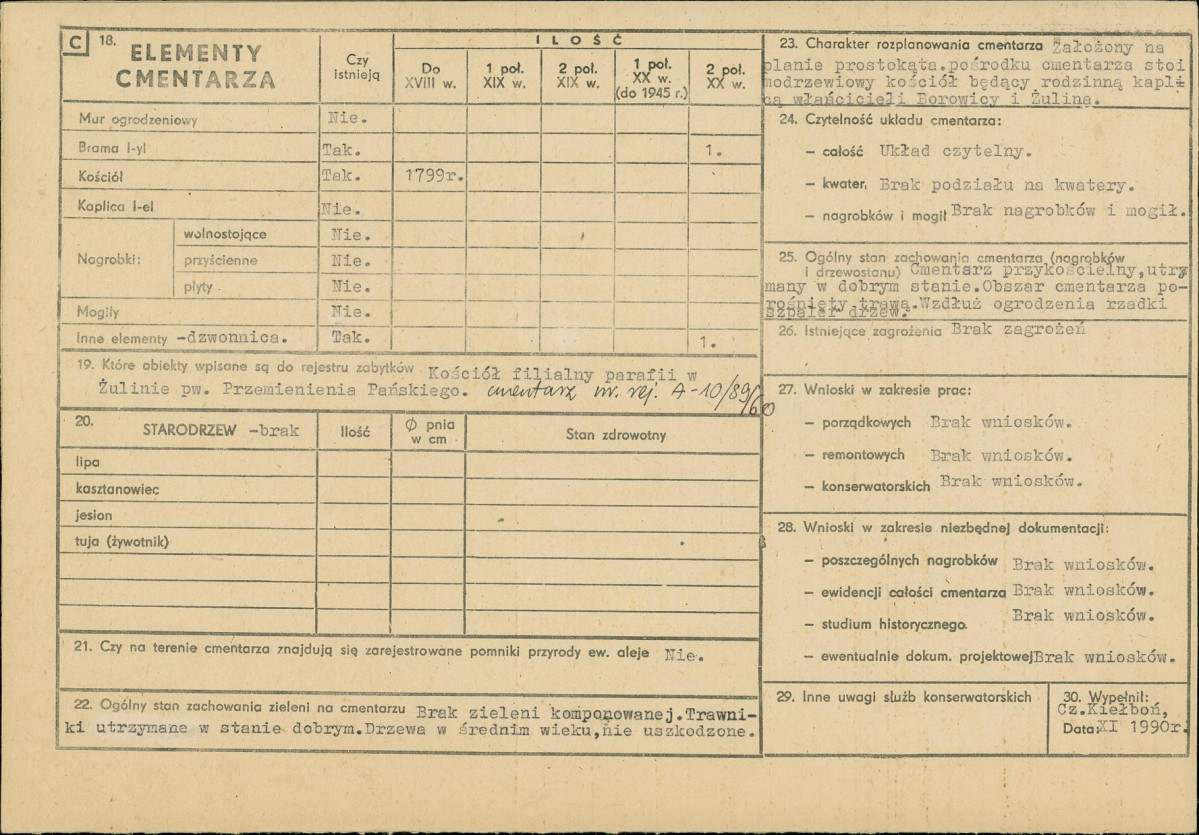 C 18. ELEMENTY CMENTARZA
Czy istnieją
ILOŚĆ
Do XVIII w.
1 poł. XIX w.
2 poł. XIX w.
1 poł. XX w. (do 1945 r.)
2 poł. XX w.
Mur ogrodzeniowy Nie.
Brama I-yl Tak. 1.
Kościół Tak. 1799r.
Kaplica I-el Nie.
Nagrobki: wolnostojące Nie.
przyścienne Nie.
płyty Nie.
Mogiły Nie.
Inne elementy -dzwonnica. Tak. 1.
19. Które obiekty wpisane są do rejestru zabytków Kościół filialny parafii w
Żulinie pw. Przemienienia Pańskiego. cmentarz nr. rej. A-10/89/60
20. STARODRZEW -brak
Ilość
Ø pnia w cm
Stan zdrowotny
lipa
kasztanowiec
jesion
tuja (żywotnik)
21. Czy na terenie cmentarza znajdują się zarejestrowane pomniki przyrody ew. aleje Nie.
22. Ogólny stan zachowania zieleni na cmentarzu Brak zieleni komponowanej.Trawni-
ki utrzymane w stanie dobrym.Drzewa w średnim wieku,nie uszkodzone.
23. Charakter rozplanowania cmentarza Założony na
planie prostokąta.pośrodku cmentarza stoi
modrzewiowy kościół będący rodzinną kapli
cą właścicieli Borowicy i Żulina.
24. Czytelność układu cmentarza:
– całość Układ czytelny.
– kwater, Brak podziału na kwatery.
– nagrobków i mogił Brak nagrobków i mogił.
25. Ogólny stan zachowania cmentarza (nagrobków
i drzewostanu) Cmentarz przykościelny,utrzy
many w dobrym stanie.Obszar cmentarza po-
rośnięty trawą.Wzdłuż ogrodzenia rzadki
szpaler drzew.
26. Istniejące zagrożenia Brak zagrożeń
27. Wnioski w zakresie prac:
– porządkowych Brak wniosków.
– remontowych Brak wniosków.
– konserwatorskich Brak wniosków.
28. Wnioski w zakresie niezbędnej dokumentacji:
– poszczególnych nagrobków Brak wniosków.
– ewidencji całości cmentarza Brak wniosków.
– studium historycznego. Brak wniosków.
– ewentualnie dokum. projektowej Brak wniosków.
29. Inne uwagi służb konserwatorskich
30. Wypełnił:
Cz.Kiełboń,
Data: XI 1990r.